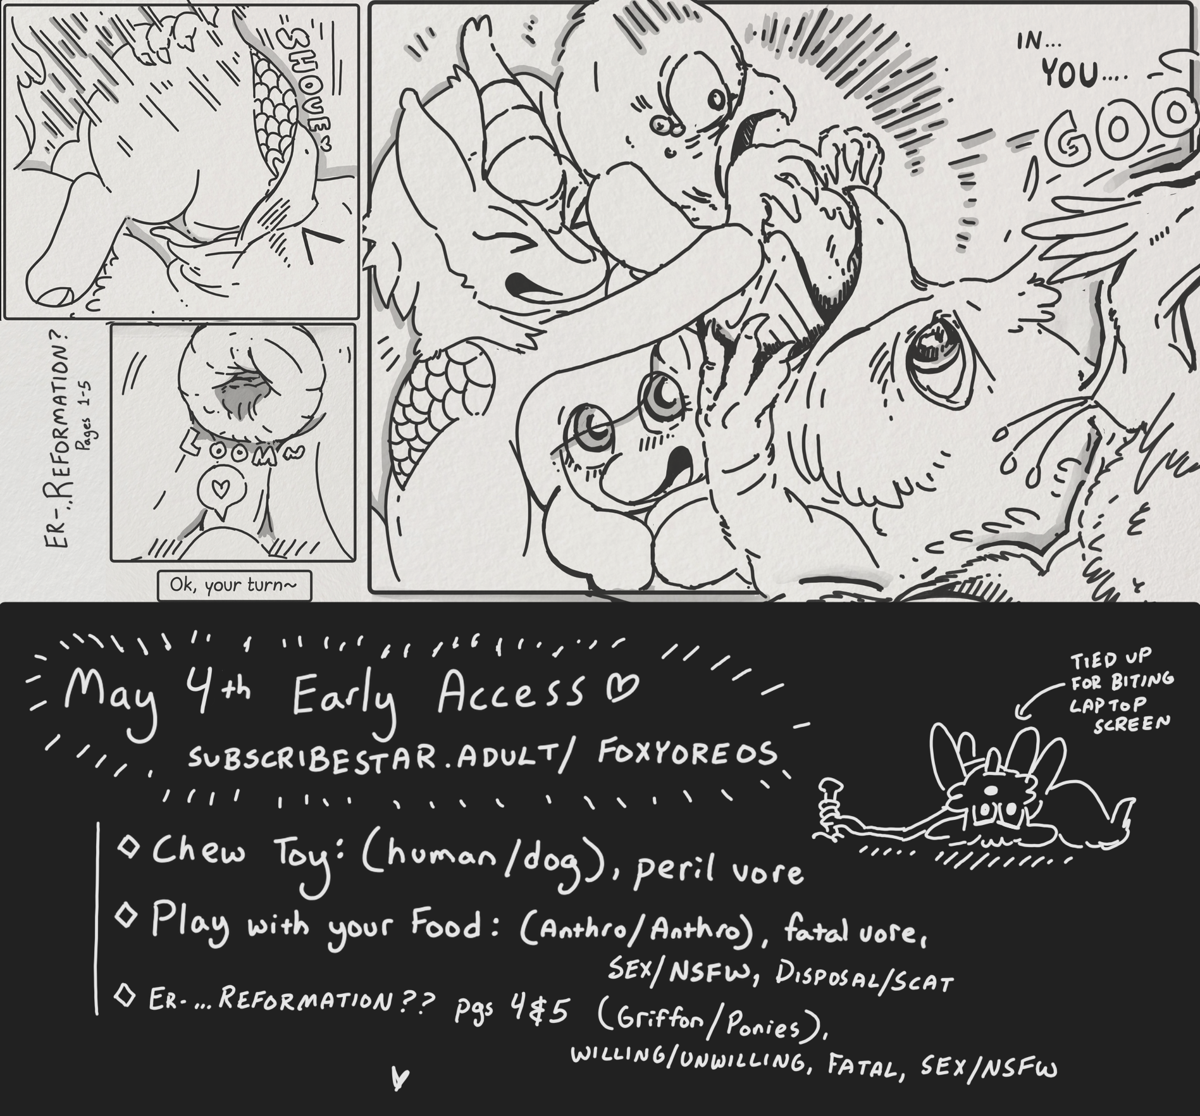 SHOVE♡
IN...
YOU....
GOO
ER-..REFORMATION?
Pages 1-5
LOOM~
Ok, your turn~
May 4th Early Access ♡
SUBSCRIBESTAR.ADULT/ FOXYOREOS
TIED UP
FOR BITING
LAPTOP
SCREEN
◇ Chew Toy: (human/dog), peril vore
◇ Play with your Food: (Anthro/Anthro), fatal vore,
SEX/NSFW, DISPOSAL/SCAT
◇ ER-...REFORMATION?? pgs 4&5 (Griffon/Ponies),
WILLING/UNWILLING, FATAL, SEX/NSFW